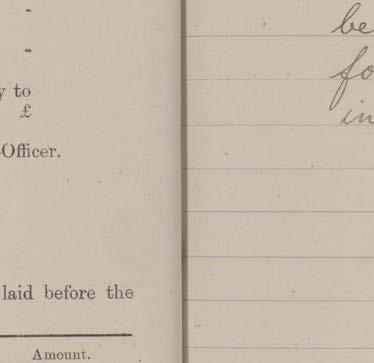 -
-
to
£
Officer.
laid before the
Amount.
be
fo
in